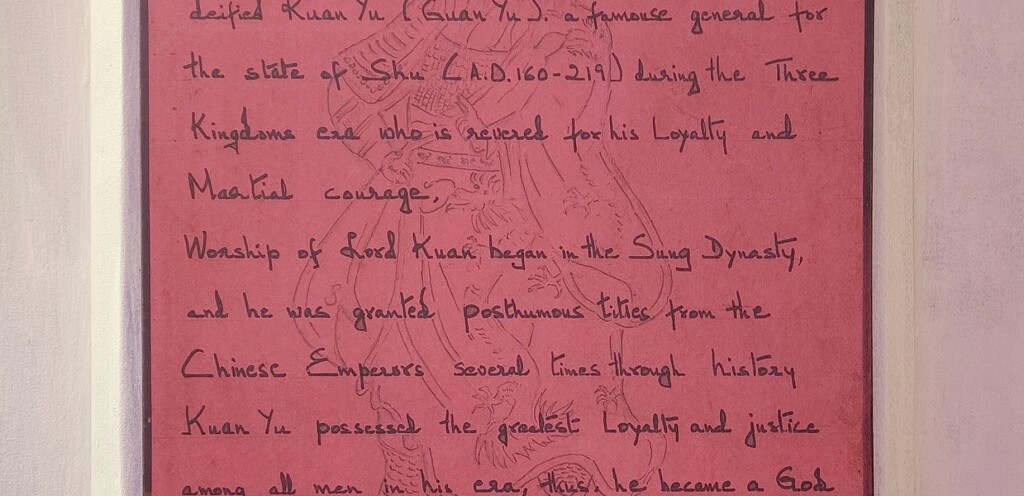 deified Kuan Yu (Guan Yu), a famouse general for
the state of Shu (A.D.160-219) during the Three
Kingdoms era who is revered for his Loyalty and
Martial courage.
Worship of Lord Kuan began in the Sung Dynasty,
and he was granted posthumous titles from the
Chinese Emperors several times through history
Kuan Yu possessed the greatest Loyalty and justice
among all men in his era, thus, he became a God